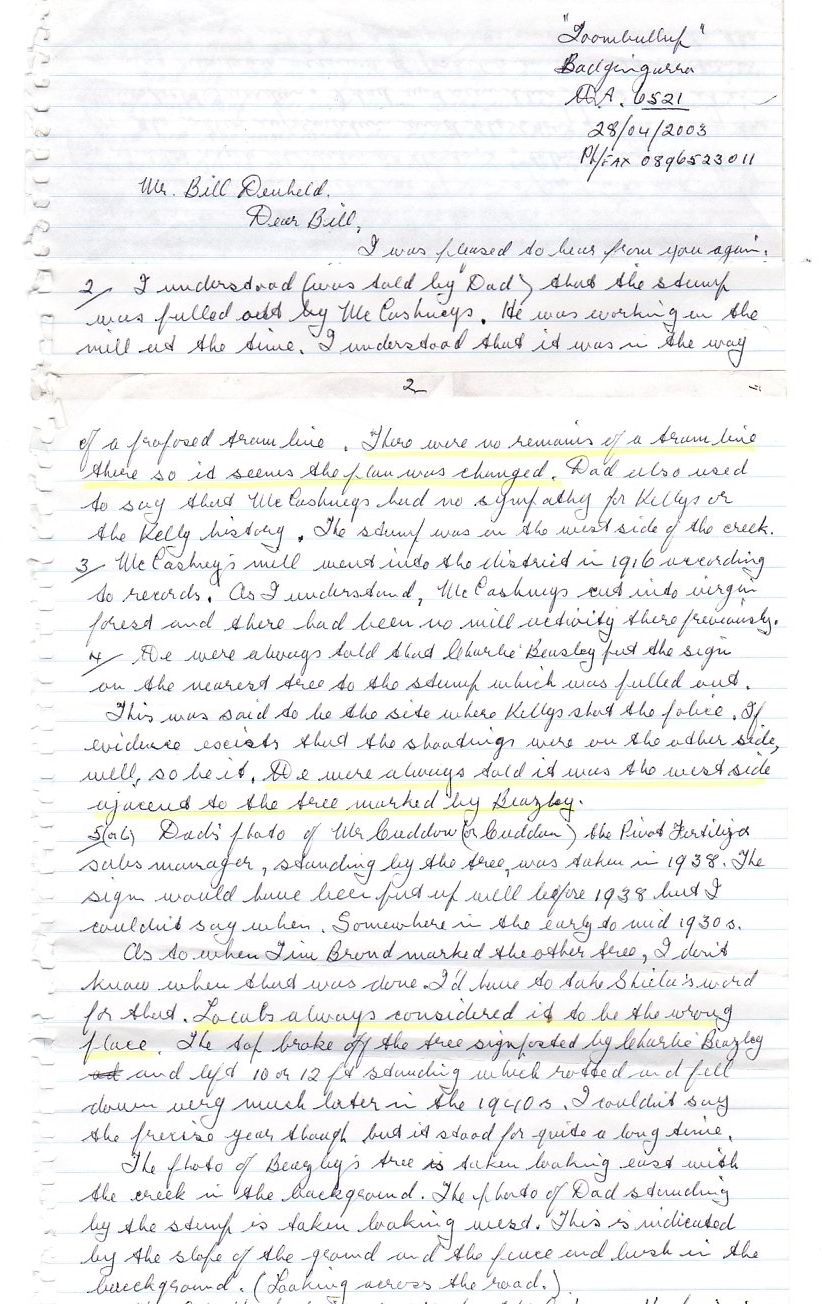 "Toombullup"
Badgingarra
W.A. 6521
28/04/2003
Ph/FAX 0896523011
Mr. Bill Denheld.
Dear Bill,
I was pleased to hear from you again.
2/ I understood (was told by Dad) that the stump
was pulled out by McCashneys. He was working in the
mill at the time. I understood that it was in the way
2
of a proposed tram line. There were no remains of a tram line
there so it seems the plan was changed. Dad also used
to say that McCashneys had no sympathy for Kellys or
the Kelly history. The stump was on the west side of the creek.
3/ McCashney's mill went into the district in 1916 according
to records. As I understand, McCashneys cut into virgin
forest and there had been no mill activity there previously.
4/ We were always told that Charlie Beasley put the sign
on the nearest tree to the stump which was pulled out.
This was said to be the site where Kellys shot the police. If
evidence excists that the shootings were on the other side,
well, so be it. We were always told it was the west side
ajacent to the tree marked by Beazley.
5(a b) Dad's photo of Mr Cuddow (or Cuddon) the Pivot Fertilizer
sales manager, standing by the tree, was taken in 1938. The
sign would have been put up well before 1938 but I
couldn't say when. Somewhere in the early to mid 1930s.
As to when Jim Brond marked the other tree, I don't
know when that was done. I'd have to take Shiela's word
for that. Locals always considered it to be the wrong
place. The top broke off the tree signposted by Charlie Beazley
and left 10 or 12 ft standing which rotted and fell
down very much later in the 1940s. I couldn't say
the precise year though but it stood for quite a long time.
The photo of Beazley's tree is taken looking east with
the creek in the background. The photo of Dad standing
by the stump is taken looking west. This is indicated
by the slope of the ground and the fence and bush in the
background. (Looking across the road.)